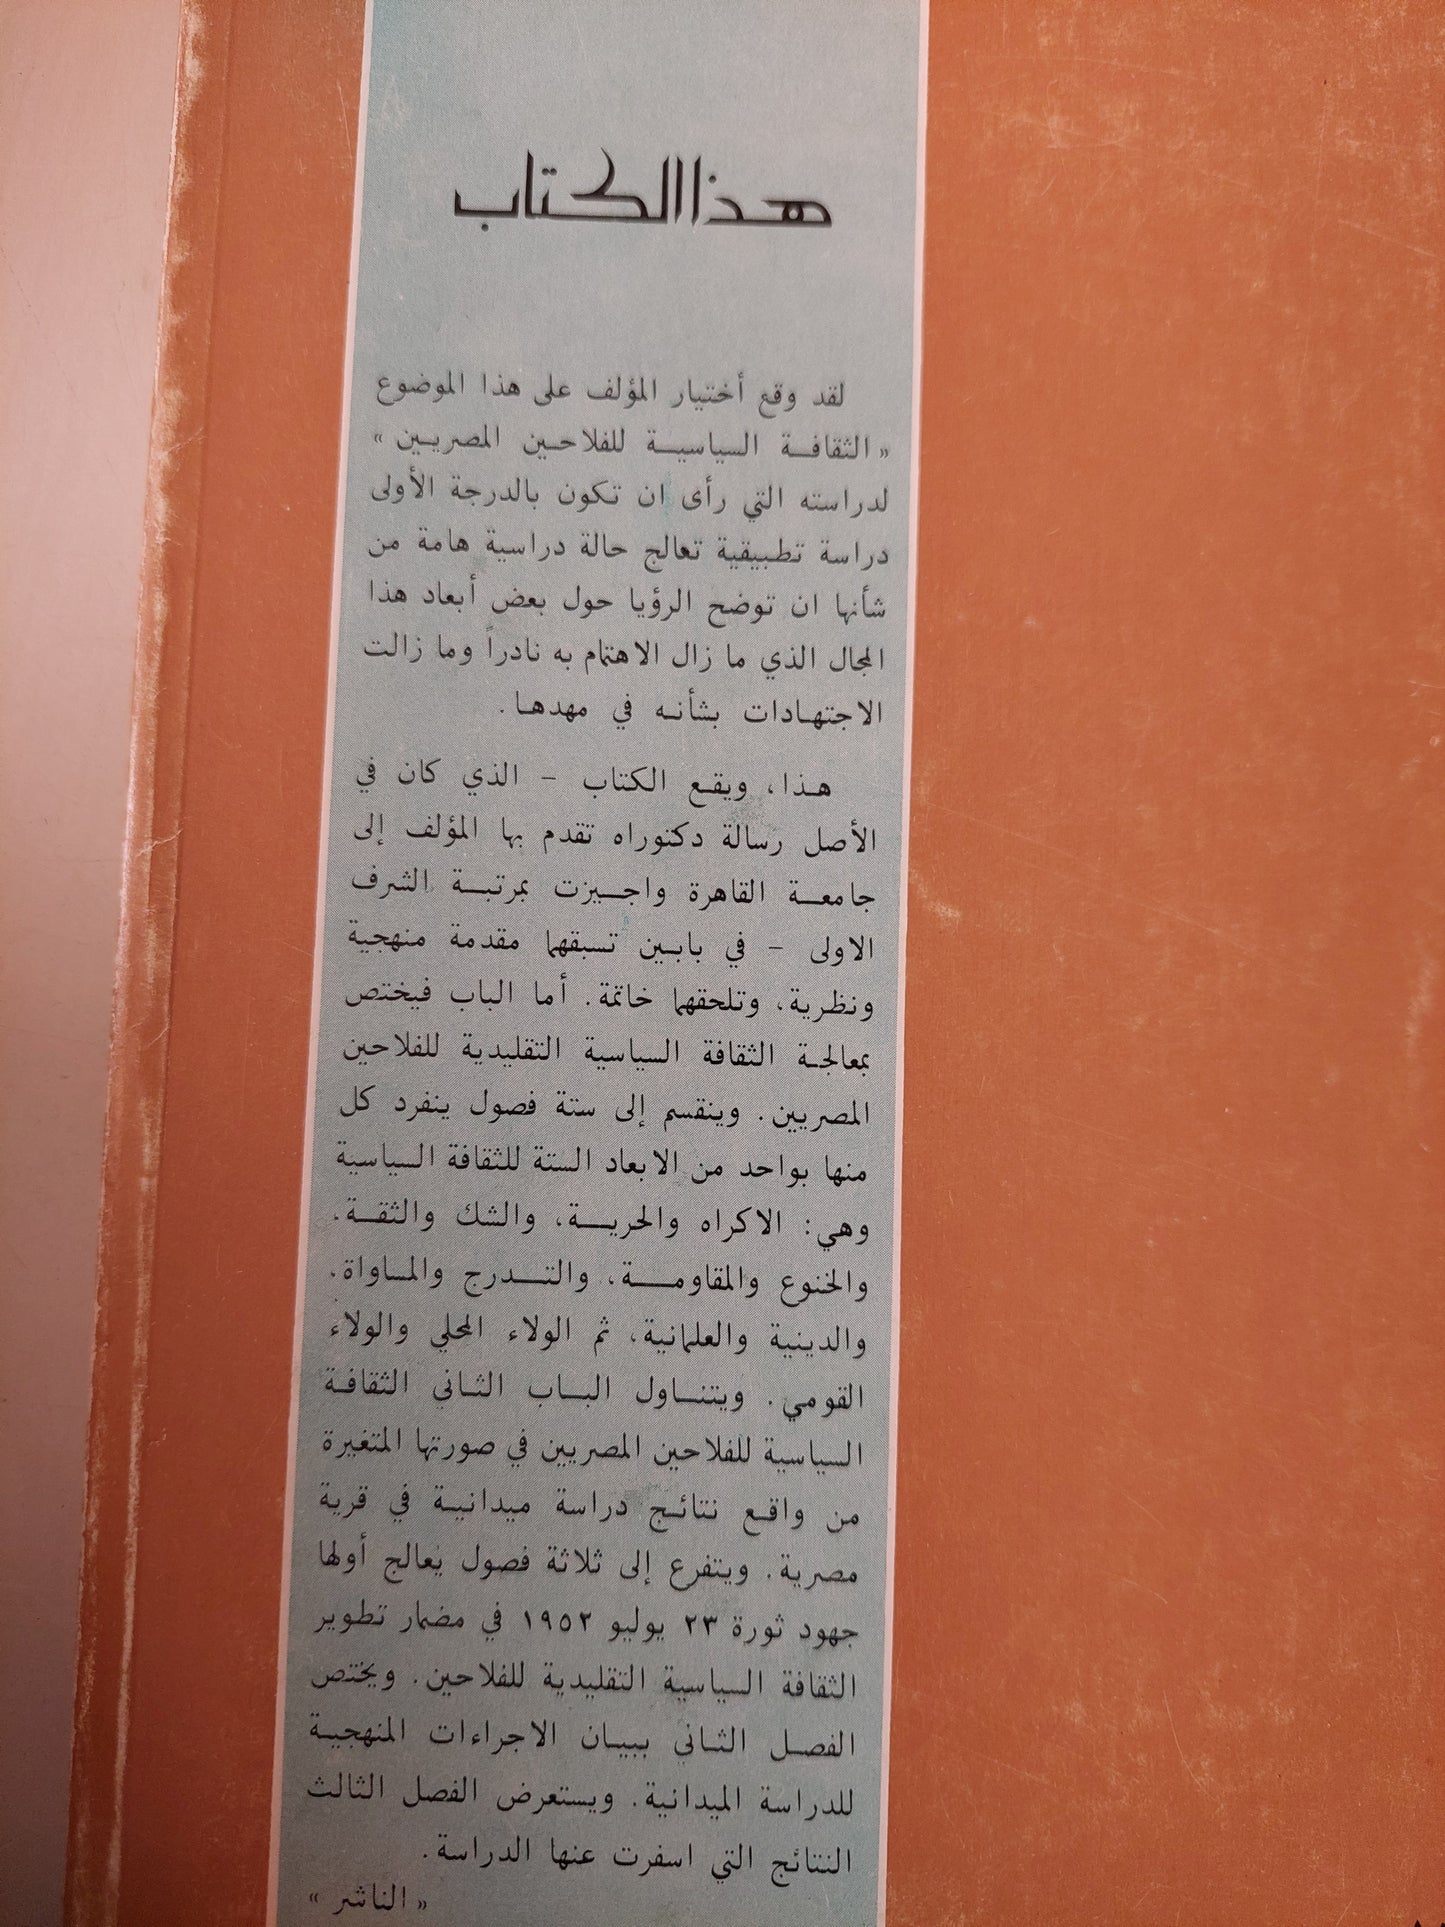 هذا الكتاب
لقد وقع أختيار المؤلف على هذا الموضوع
« الثقافة السياسية للفلاحين المصريين »
لدراسته التي رأى ان تكون بالدرجة الأولى
دراسة تطبيقية تعالج حالة دراسية هامة من
شأنها ان توضح الرؤيا حول بعض أبعاد هذا
المجال الذي ما زال الاهتمام به نادراً وما زالت
الاجتهادات بشأنه في مهدها.
هذا، ويقع الكتاب - الذي كان في
الأصل رسالة دكتوراه تقدم بها المؤلف إلى
جامعة القاهرة واجيزت بمرتبة الشرف
الاولى - في بابين تسبقهما مقدمة منهجية
ونظرية، وتلحقهما خاتمة. أما الباب فيختص
بمعالجة الثقافة السياسية التقليدية للفلاحين
المصريين. وينقسم إلى ستة فصول ينفرد كل
منها بواحد من الابعاد الستة للثقافة السياسية
وهي: الاكراه والحرية، والشك والثقة،
والخنوع والمقاومة، والتدرج والمساواة،
والدينية والعلمانية، ثم الولاء المحلي والولاء
القومي. ويتناول الباب الثاني الثقافة
السياسية للفلاحين المصريين في صورتها المتغيرة
من واقع نتائج دراسة ميدانية في قرية
مصرية. ويتفرع إلى ثلاثة فصول يعالج أولها
جهود ثورة ٢٣ يوليو ١٩٥٢ في مضمار تطوير
الثقافة السياسية التقليدية للفلاحين. ويختص
الفصل الثاني ببيان الاجراءات المنهجية
للدراسة الميدانية. ويستعرض الفصل الثالث
النتائج التي اسفرت عنها الدراسة.
« الناشر »